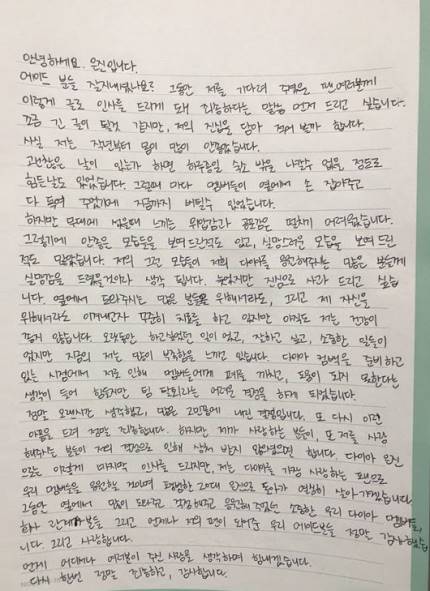 안녕하세요. 은진입니다.
에이드 분들 잘지내셨나요? 그동안 저를 기다려 주셨을 팬여러분께
이렇게 글로 인사를 드리게 돼 죄송하다는 말씀 먼저 드리고 싶습니다.
조금 긴 글이 될것 같지만, 저의 진심을 담아 적어 볼까 합니다.
사실 저는 작년부터 몸이 많이 안좋았습니다.
괜찮은 날이 있는가 하면 하루종일 숙소 밖을 나갈수 없을 정도로
힘든날도 있었습니다. 그럴때 마다 멤버들이 옆에서 손 잡아주고
다 독여 주었기에 지금까지 버틸수 있었습니다.
하지만 무대에 섰을때 느끼는 위압감과 공포감은 떨치기 어려웠습니다.
그렇기에 안좋은 모습들을 보여 드린적도 있고, 실망스러운 모습을 보여 드린
적도 많았습니다. 저의 그런 모습들이 저희 다이아를 응원해주시는 많은 분들께
실망감을 드렸을것이라 생각 됩니다. 늦었지만 진심으로 사과 드리고 싶습
니다. 옆에서 도와주시는 많은 분들을 위해서라도, 그리고 제 자신을
위해서라도 이겨내고자 꾸준히 치료를 하고 있지만 아직도 저는 건강이
좋지 않습니다. 오랫동안 하고싶었던 일이 었고, 잘하고 싶고, 소중한 일들이
었지만 지금의 저는 많이 부족함을 느끼고 있습니다. 다이아 컴백을 준비하고
있는 시점에서 저로 인해 멤버들에게 폐를 끼치고, 도움이 되지 못한다는
생각이 들어 힘들지만 팀 탈퇴라는 어려운 결정을 하게 되었습니다.
정말 오랜시간 생각했고, 많은 고민끝에 내린 결정입니다. 또 다시 이런
아픔을 드려 정말 죄송합니다. 하지만 제가 사랑하는 분들이, 또 저를 사랑
해주시는 분들이 저의 결정으로 인해 상처 받지 않았으면 합니다. 다이아 은진
으로는 이렇게 마지막 인사를 드리지만, 저는 다이아를 가장 사랑하는 팬으로
우리 멤버들을 응원할 것이며 평범한 20대 안으로 돌아가 열심히 살아가겠습니다
그동안 옆에서 많이 도와주고 걱정해주고 응원해 주었던 소중한 우리 다이아 멤버들,
회사 관계자 분들 그리고 언제나 저의 편이 되어준 우리 에이드분들 정말 감사했습
니다. 그리고 사랑합니다.
언제 어디에나 여러분이 주신 사랑을 생각하며 힘내겠습니다.
다시 한번 정말 죄송하고, 감사합니다.